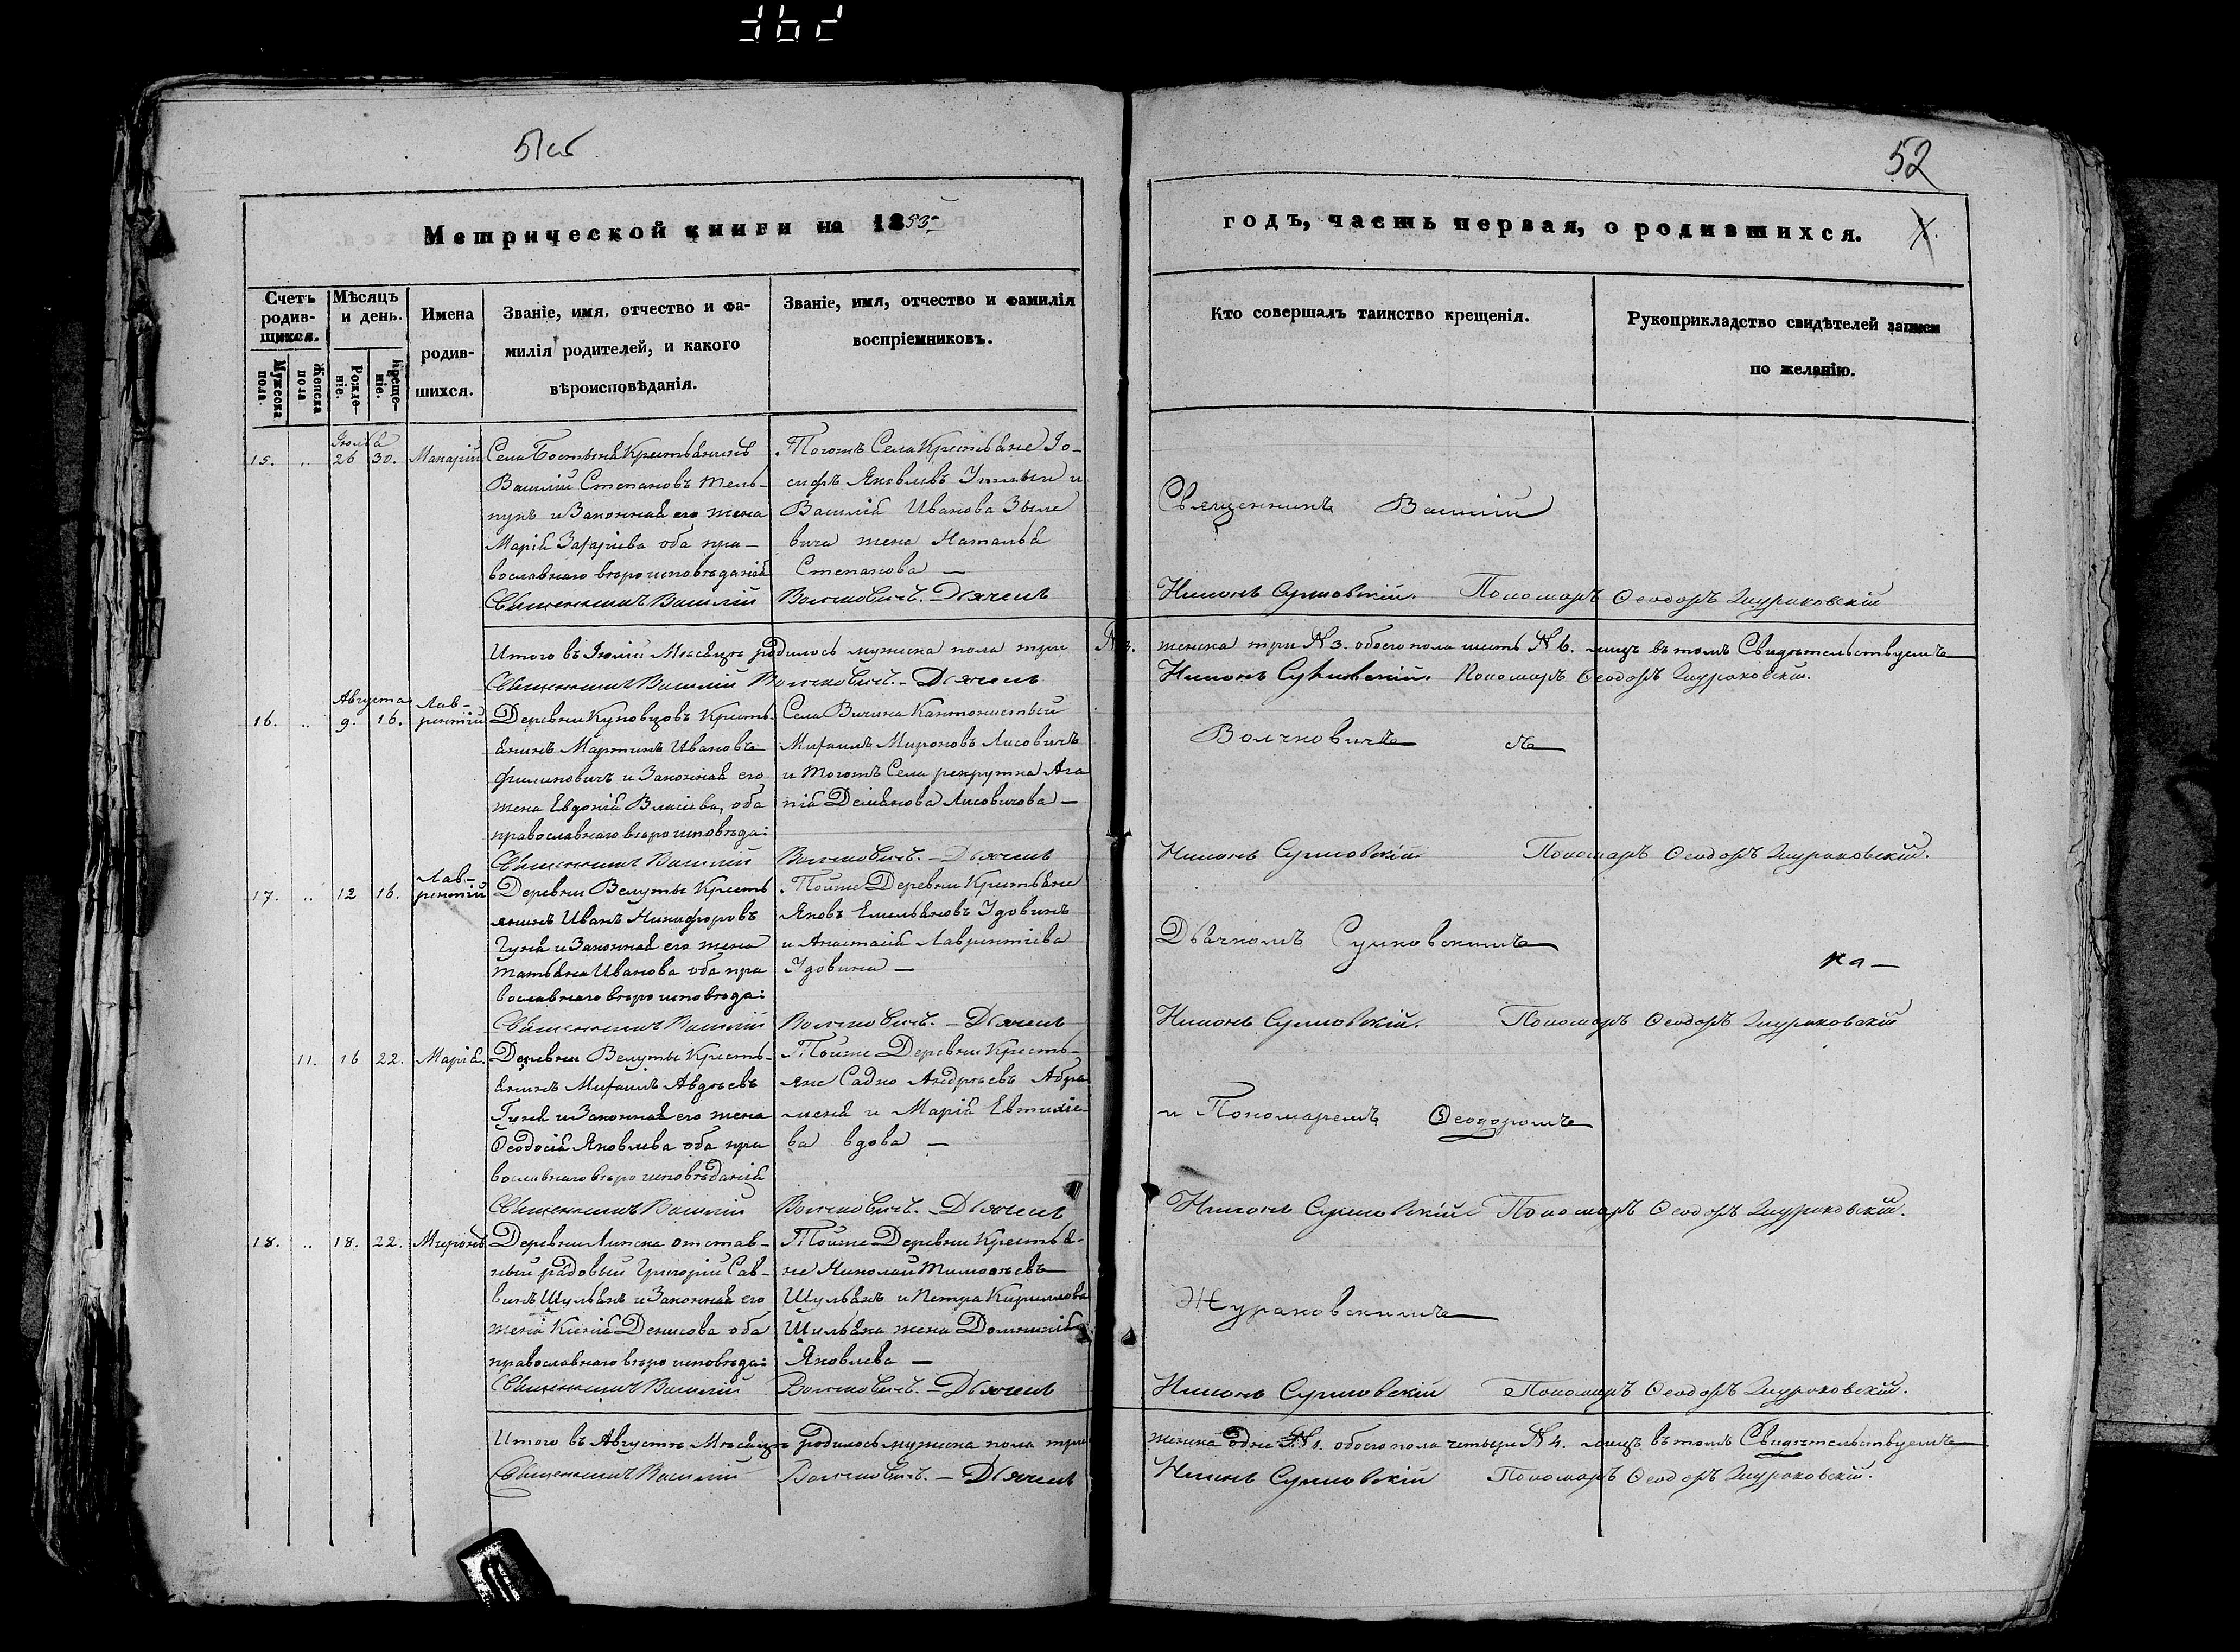 362
51об
52
Метрической книги на 1853
годъ, часть первая, о родившихся.
Счетъ родив-шихся.
Мужеска пола.
Женска пола
Мѣсяцъ и день.
Рожде-ніе.
Креще-ніе.
Имена родив-шихся.
Званіе, имя, отчество и фа-
милія родителей, и какого
вѣроисповѣданія.
Званіе, имя, отчество и фамилія
воспріемниковъ.
Кто совершалъ таинство крещенія.
Рукоприкладство свидѣтелей записи
по желанію.
Іюля
15. .. 26 30. Макарій
Села Бостыня Крестьянинъ
Василій Степановъ Мель-
нукъ и Законная его жена
Марія Захаріева оба пра-
вославнаго вѣроисповѣданія
Тогожъ Села Крестьяне Іо-
сифъ Яковлевъ и
Василія Иванова
вича жена Наталья
Степанова
Священникъ Василій
Священникъ Василій Волчковичъ. Дьячекъ
Никонъ Сулковскій. Пономаръ Ѳеодоръ Жураковскій
Итого въ Іюлѣ Мѣсяцѣ родилось мужеска пола три N 3.
женска три N 3. обоего пола шесть N 6. лицъ въ томъ Свидѣтельствуемъ
Священникъ Василій Волчковичъ. Дьячекъ
Никонъ Сулковскій. Пономаръ Ѳеодоръ Жураковскій.
Августа
16. .. 9. 16. Лав-рентій
Деревни Куповцовъ Кресть-
янинъ Мартинъ Ивановъ
Филиповичъ и Законная его
жена Евдокія Власіева, оба
православнаго вѣроисповѣда:
Села Вичина Кантонистый
Михаилъ Мироновъ Лисовичъ
и тогожъ Села рекрутка Ага
пія Демянова Лисовичова
Волчковичъ съ
Священникъ Василій Волчковичъ. Дьячекъ
Никонъ Сулковскій Пономаръ Ѳеодоръ Жураковскій.
17. .. 12 16. Лав-рентій
Деревни Велуты Кресть
янинъ Иванъ Никифоровъ
Гуня и Законная его жена
Татьяна Иванова оба пра
вославнаго вѣроисповѣда:
Тойже Деревни Крестьяне
Яковъ Емельяновъ Удовинъ
и Анастасія Лаврентіева
Удовина
Дьячкомъ Сулковскимъ
Священникъ Василій Волчковичъ. Дьячекъ
Никонъ Сулковскій. Пономаръ Ѳеодоръ Жураковскій
11. 16 22. Марія.
Деревни Велуты Кресть-
янинъ Михаилъ Авдѣевъ
Гуня и Законная его жена
Ѳеодосія Яковлева оба пра
вославнаго вѣроисповѣданія
Тойже Деревни Кресть-
яне Садко Андрѣевъ Абра
меня и Марія Евтихіе-
ва вдова
и Пономаремъ Ѳеодоромъ
Священникъ Василій Волчковичъ. Дьячекъ
Никонъ Сулковскій Пономаръ Ѳеодоръ Жураковскій.
18. .. 18. 22. Миронъ
Деревни Липска отстав-
ный рядовый Григорій Сав-
винъ Шульякъ и Законная его
жена Ксенія Денисова оба
православнаго вѣроисповѣда:
Тойже Деревни Крестья-
не Николай Тимоѳѣевъ
Шульякъ и Петра Кириллова
Шульяка жена Домникія
Яковлева
Жураковскимъ
Священникъ Василій Волчковичъ. Дьячекъ
Никонъ Сулковскій Пономаръ Ѳеодоръ Жураковскій.
Итого въ Августѣ Мѣсяцѣ родилось мужеска пола три
женска одна N 1. обоего пола четыри N 4. лицъ въ томъ Свидѣтельствуемъ
Священникъ Василій Волчковичъ. Дьячекъ
Никонъ Сулковскій Пономаръ Ѳеодоръ Жураковскій.